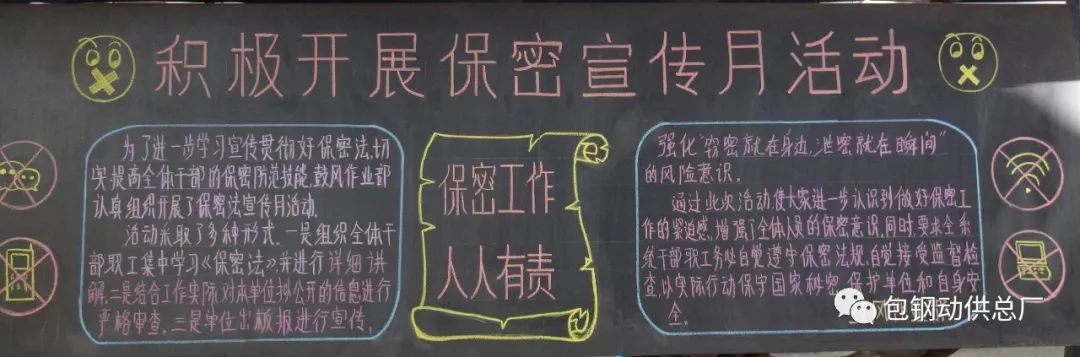 积极开展保密宣传月活动
为了进一步学习宣传贯彻好保密法,切
实提高全体干部的保密防范技能,鼓风作业部
认真组织开展了保密法宣传月活动.
活动采取了多种形式.一是组织全体干
部职工集中学习《保密法》,并进行详细讲
解,二是结合工作实际,对本单位拟公开的信息进行
严格审查,三是单位出板报进行宣传.
保密工作
人人有责
强化“窃密就在身边,泄密就在瞬间”
的风险意识.
通过此次活动使大家进一步认识到做好保密工
作的紧迫感,增强了全体人员的保密意识,同时要求全系
统干部职工务必自觉遵守保密法规,自觉接受监督检
查,以实际行动保守国家秘密,保护单位和自身安
全.
包钢动供总厂